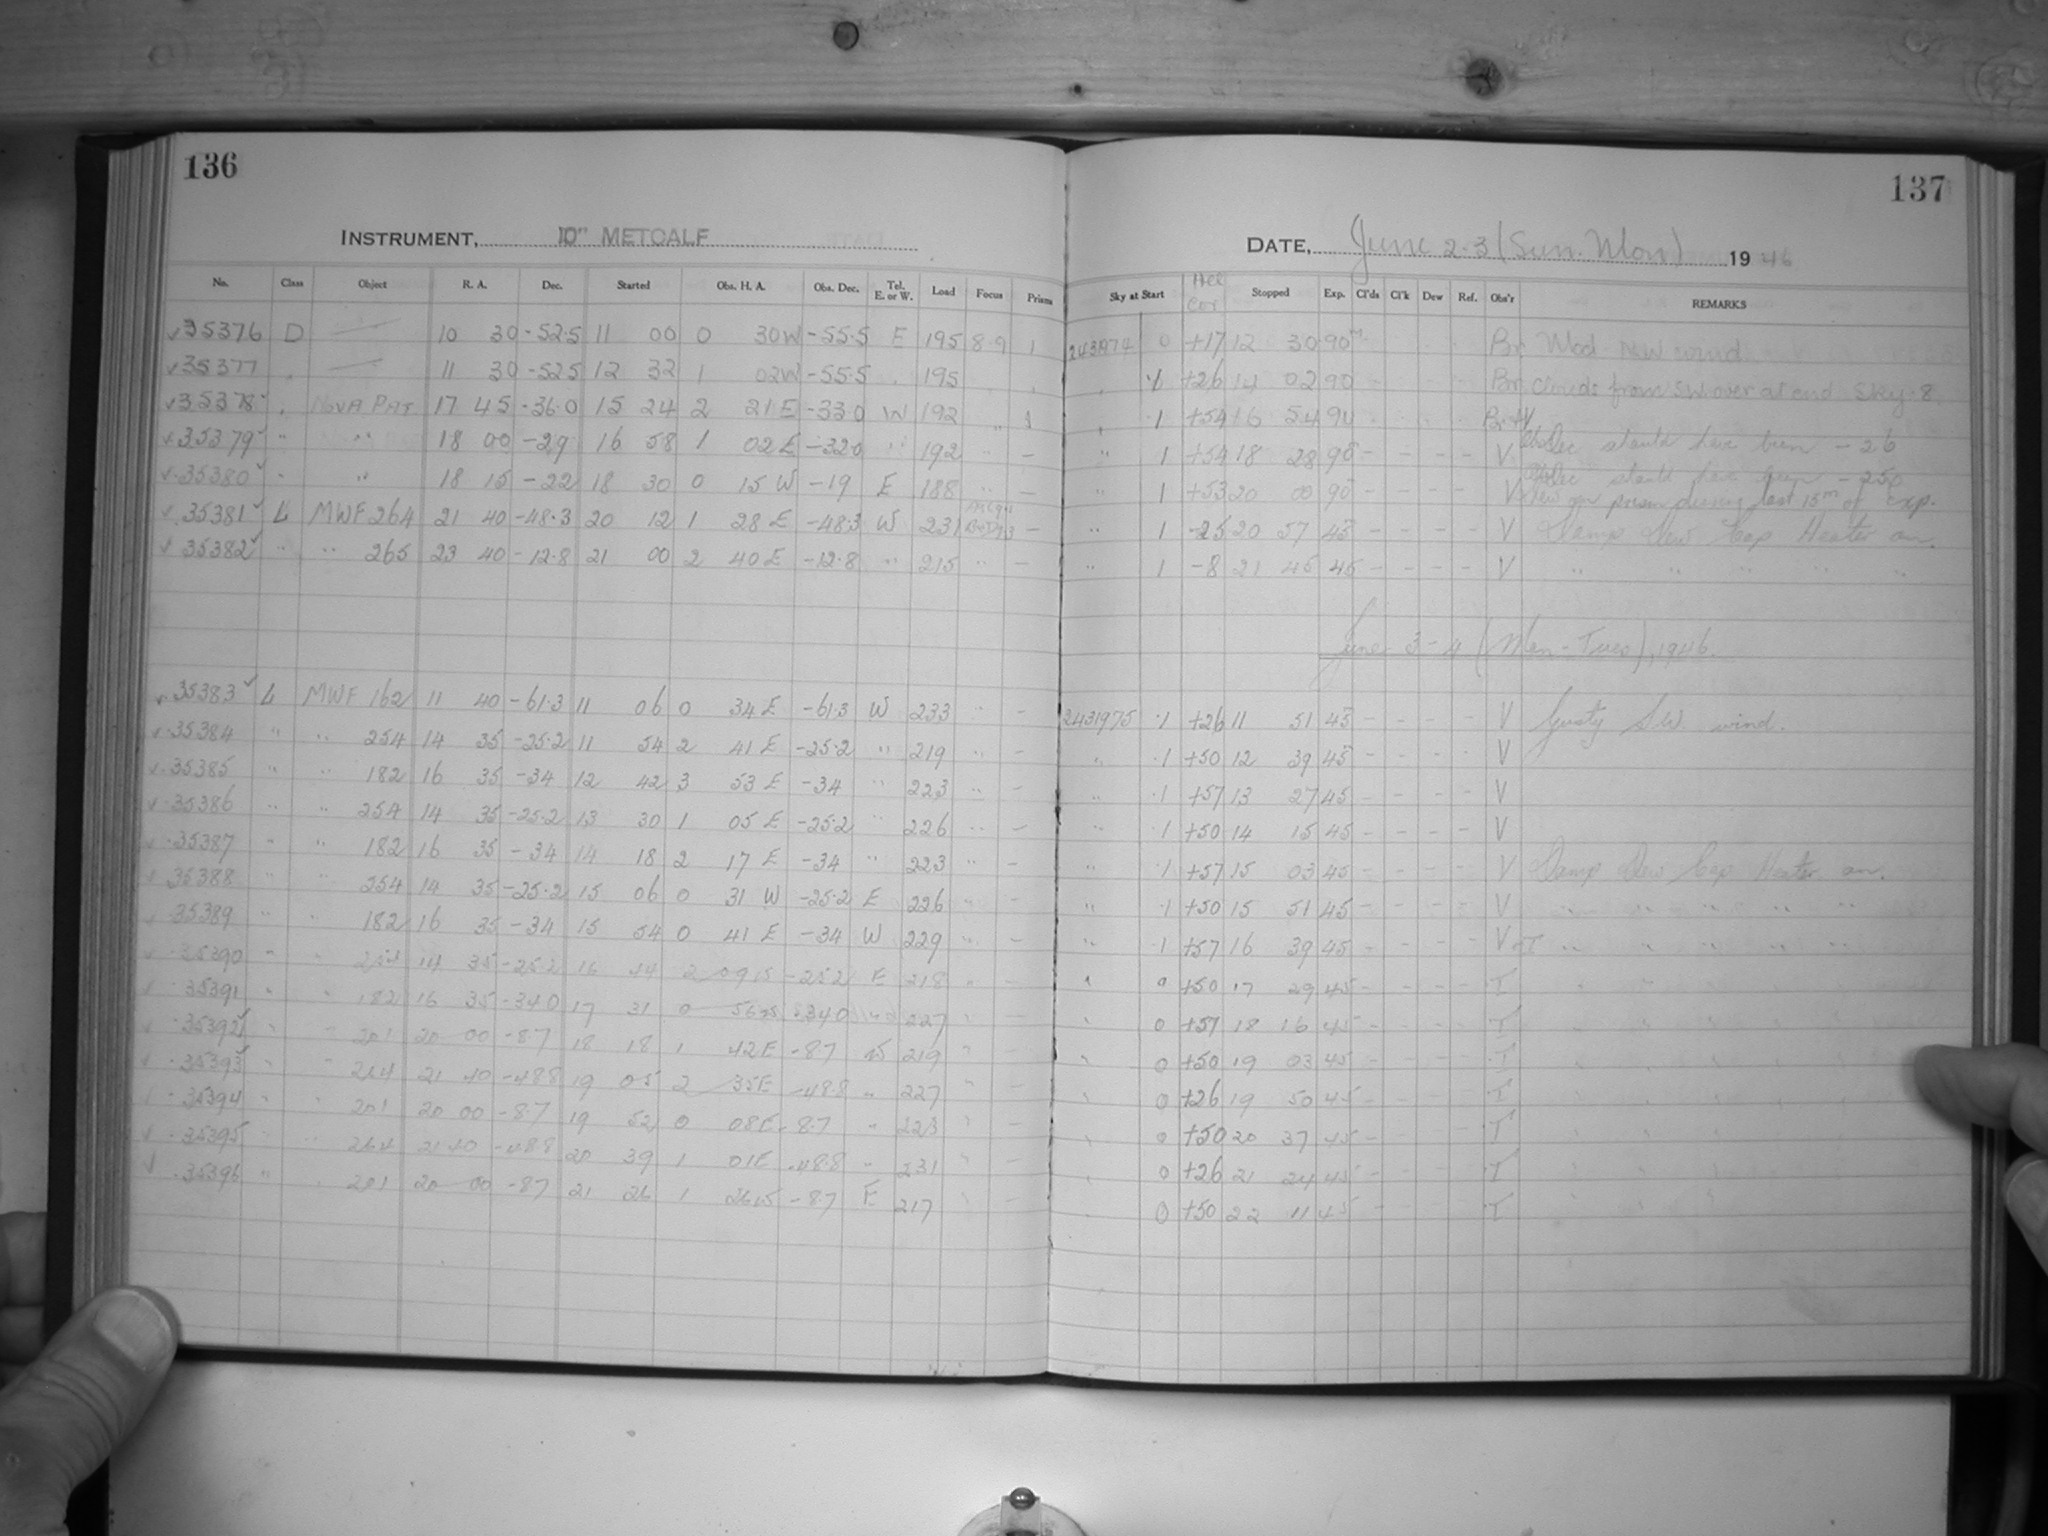 136
INSTRUMENT, 10" METCALF
No. Class Object R. A. Dec. Started Obs. H. A. Obs. Dec. Tel. E. or W. Load Focus Prism
35376 D 10 30 -52.5 11 00 0 30W -55.5 E 195 8.9 1
35377 11 30 -52.5 12 32 1 02W -55.5 195
35378 NOVA PAT 17 45 -36.0 15 24 2 21E -33.0 W 192
35379 " " 18 00 -29 16 58 1 02E -32.0 " 192 " -
35380 " " 18 15 -22 18 30 0 15W -19 E 188 " -
35381 L MWF 264 21 40 -48.3 20 12 1 28E -48.3 W 231 -
35382 " " 265 23 40 -12.8 21 00 2 40E -12.8 " 215 " -
35383 L MWF 162 11 40 -61.3 11 06 0 34E -61.3 W 233 " -
35384 " " 254 14 35 -25.2 11 54 2 41E -25.2 " 219 " -
35385 " " 182 16 35 -34 12 42 3 53E -34 " 223 " -
35386 " " 254 14 35 -25.2 13 30 1 05E -25.2 " 226 " -
35387 " " 182 16 35 -34 14 18 2 17E -34 " 223 " -
35388 " " 254 14 35 -25.2 15 06 0 31W -25.2 E 226 " -
35389 " " 182 16 35 -34 15 54 0 41E -34 W 229 " -
35390 " " 254 14 35 -25.2 16 44 2 09 -25.2 E 218 " -
35391 " " 182 16 35 -34.0 17 31 0 56 -34.0 227 " -
35392 " " 201 20 00 -8.7 18 18 1 42E -8.7 W 219 " -
35393 " " 264 21 40 -48.8 19 05 2 35E -48.8 " 227 " -
35394 " " 201 20 00 -8.7 19 52 0 08E -8.7 " 223 " -
35395 " " 264 21 40 -48.8 20 39 1 01E -48.8 " 231 " -
35396 " " 201 20 00 -8.7 21 26 1 26 -8.7 E 217 " -
137
DATE, June 2-3 (Sun. Mon) 1946
Sky at Start Hel Cor Stopped Exp. Cl'ds Cl'k Dew Ref. Obs'r REMARKS
2431974 0 +17 12 30 90m Br Mod NW wind
+26 14 02 90 Br Clouds from SW over at end Sky .8
.1 +54 16 54 90
Obs Dec should have been -26
" 1 +54 18 28 90 - - - - V
Obs Dec should have been -25.0
" 1 +53 20 00 90 - - - - V Dew on prism during last 15m of exp.
" 1 -25 20 57 45 - - - - V Damp Dew Cap Heater on.
" 1 -8 21 45 45 - - - - V " " " " "
June 3-4 (Mon-Tues), 1946.
2431975 .1 +26 11 51 45 - - - - V Gusty S.W. wind.
" .1 +50 12 39 45 - - - - V
" .1 +57 13 27 45 - - - - V
" .1 +50 14 15 45 - - - - V
" .1 +57 15 03 45 - - - - V Damp Dew Cap Heater on.
" .1 +50 15 51 45 - - - - V " " " " "
" .1 +57 16 39 45 - - - - V-T " " " " "
" 0 +50 17 29 45 - - - - T
" 0 +57 18 16 45 - - - - T
" 0 +50 19 03 45 - - - - T
" 0 +26 19 50 45 - - - - T
" 0 +50 20 37 45 - - - - T
" 0 +26 21 24 45 - - - - T
" 0 +50 22 11 45 - - - - T